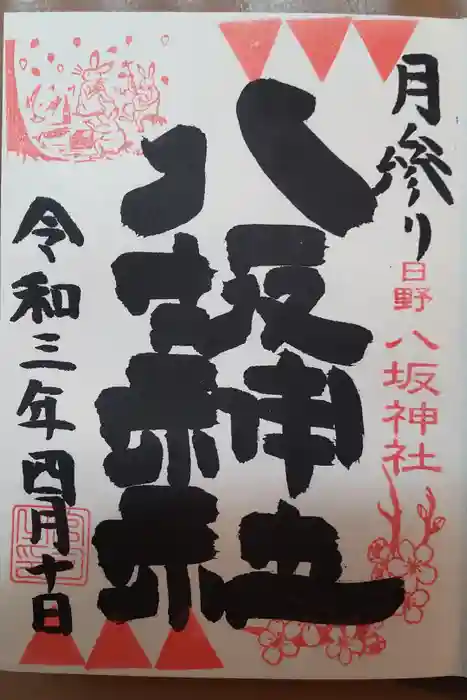 月参り
日野
八坂神社
八坂神社
令和三年四月十日